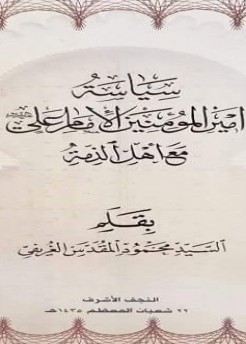 سياسة
أمير المؤمنين الإمام علي
مع أهل الذمة
بقلم
السيد محمود المقدس الغريفي
النجف الأشرف
٢٢ شعبان المعظم ١٤٣٥هـ